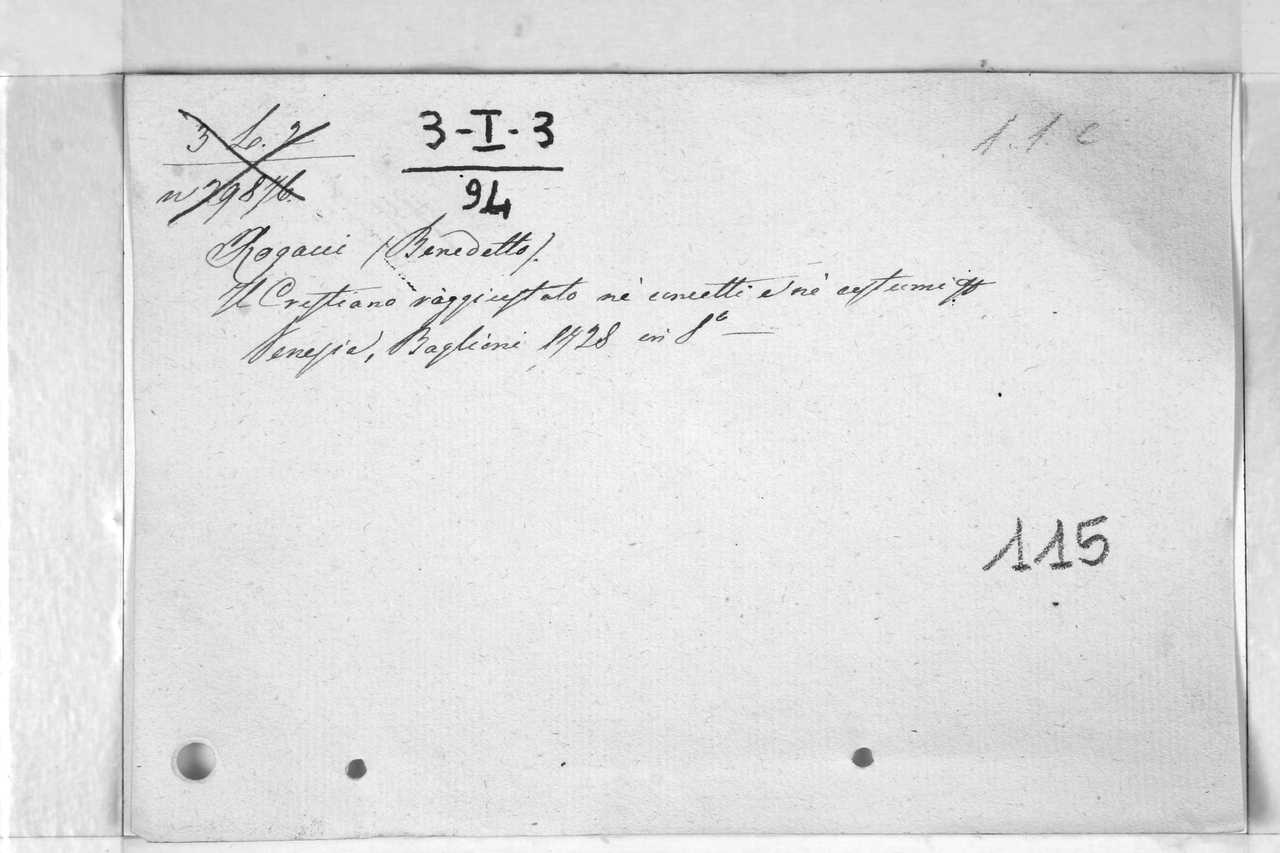 3 L. 2
n 29876.
3-I-3
94
1.1 c
Rogacci (Benedetto).
Il Cristiano raggiustato nè concetti e nè costumi
Venezia, Baglioni 1728 in 8°
115